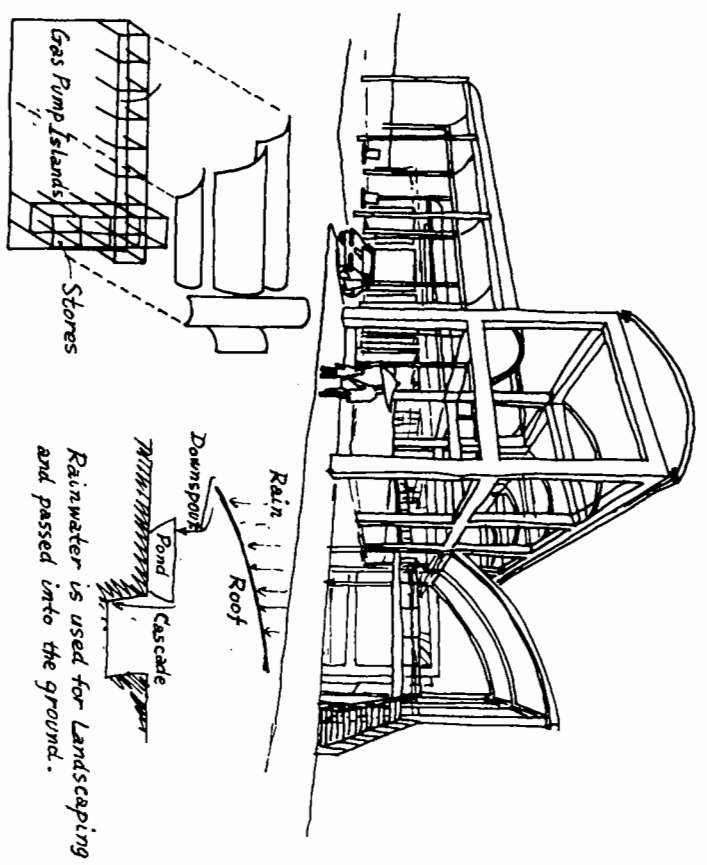 Gas Pump Islands
Stores
Rain
Roof
Downspout
Pond
Cascade
Rainwater is used for Landscaping
and passed into the ground.